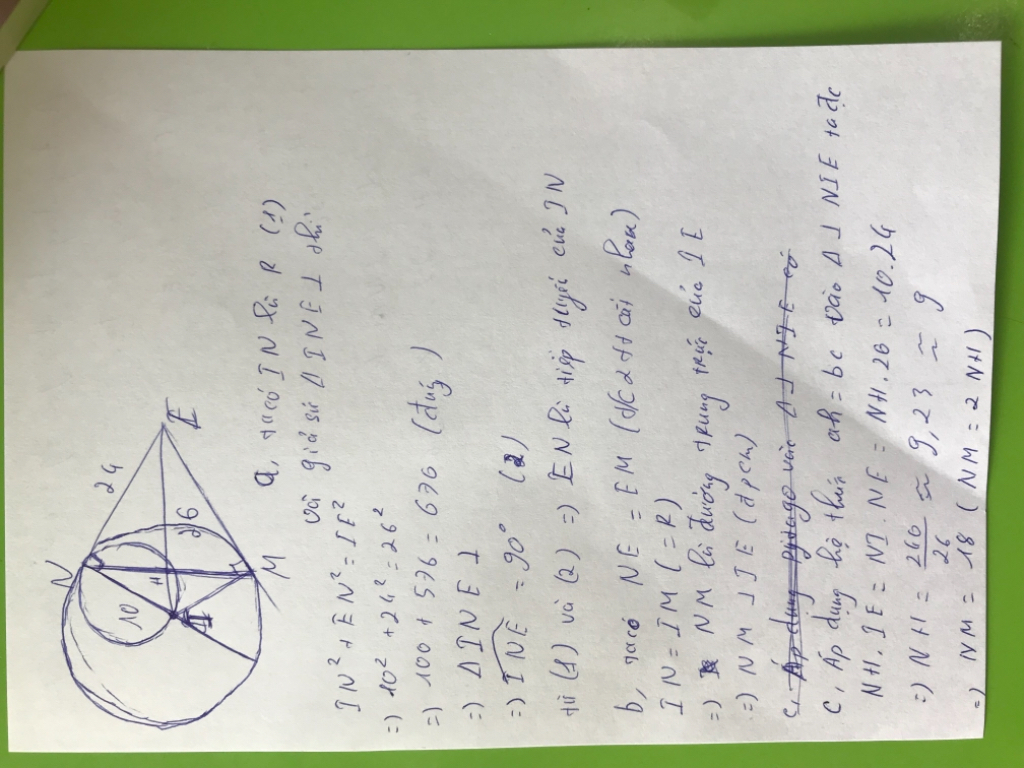 N
24
10
26
H
I
E
M
a, ta có IN là R (1)
và giả sử Δ INE ⊥ thì
IN² + EN² = IE²
=) 10² + 24² = 26²
=) 100 + 576 = 676 (đúng)
=) Δ INE ⊥
=) INE = 90° (2)
từ (1) và (2) =) EN là tiếp tuyế của IN
b, ta có NE = EM (t/c 2 tt cắt nhau)
IN = IM (= R)
=) NM là đường trung trực của IE
=) NM ⊥ IE (đpcm)
c, Áp dụng pytago vào Δ ⊥ NIE có
c, Áp dụng hệ thức ah = bc vào Δ ⊥ NIE ta đc
NH. IE = NI. NE = NH. 26 = 10.24
=) NH = 240/26 ≈ 9,23 ≈ 9
=) NM = 18 ( NM = 2 NH)